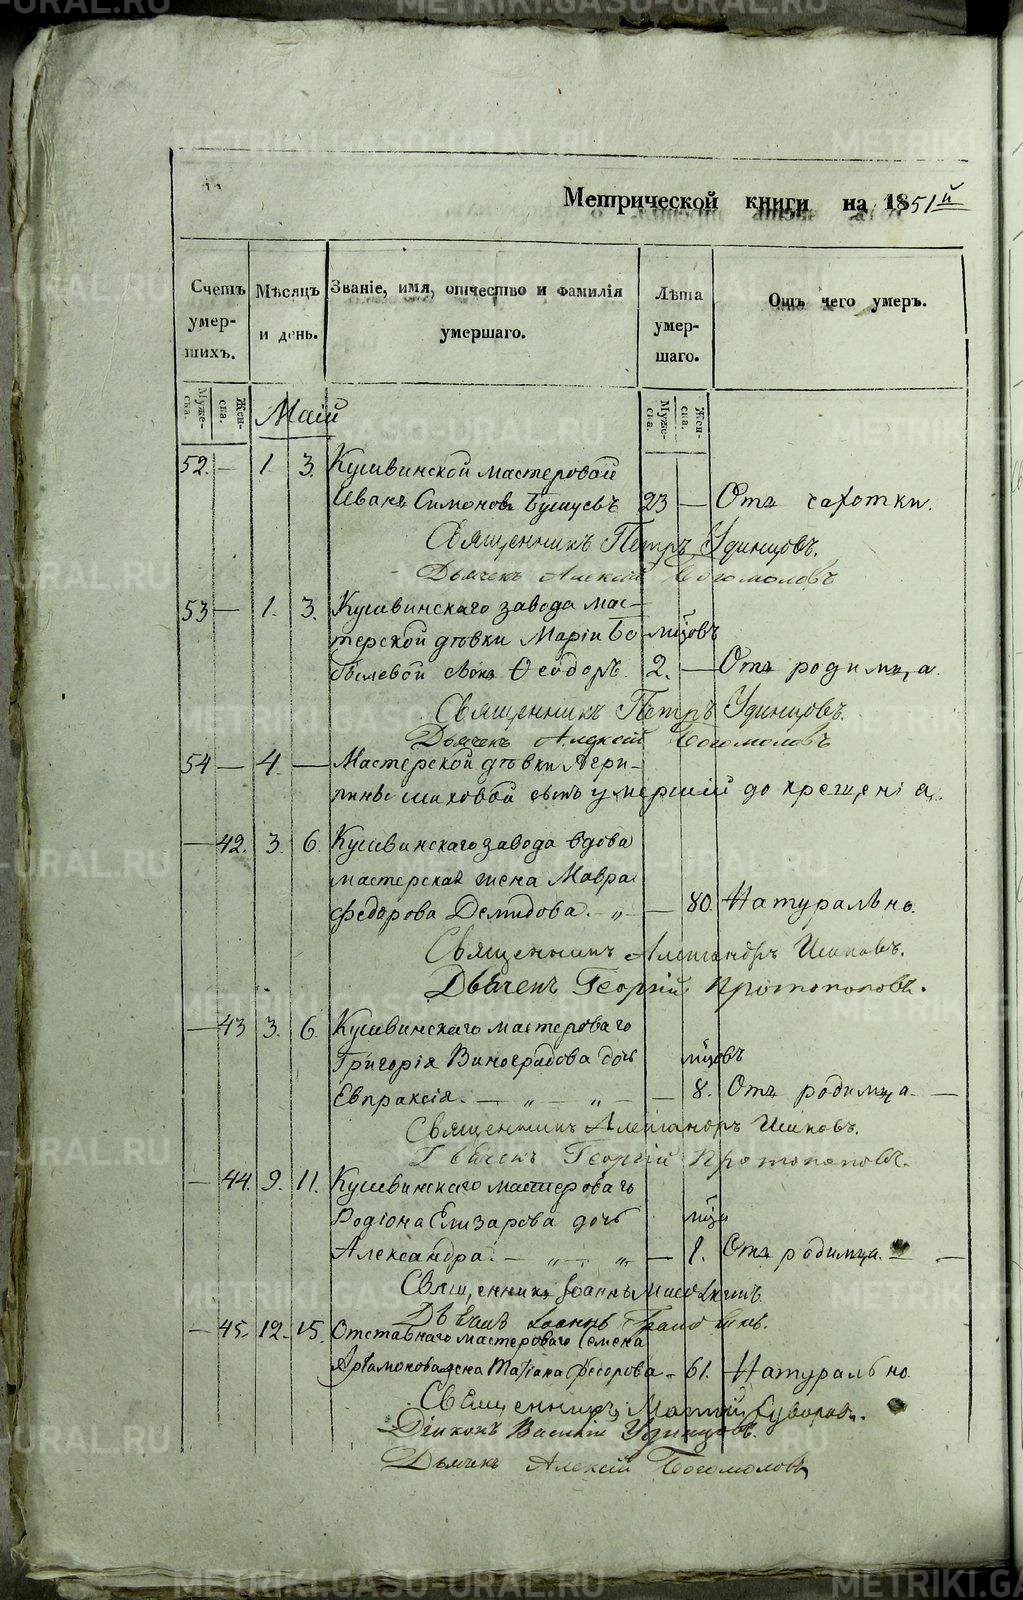 Метрической книги на 1851й
Счетъ умер-шихъ.
Мѣсяцъ и день.
Званіе, имя, отчество и фамилія умершаго.
Лѣта умер-шаго.
Отъ чего умеръ.
Муже-ска. Жен-ска.
Маій
Муже-ска. Жен-ска.
52. — 1. 3. Кушвинской мастеровой
Иванъ Симоновъ Бушуевъ 23 — Отъ сахотки.
Священникъ Петръ Удинцовъ.
Дьячекъ Алексій Богомоловъ
53 — 1. 3. Кушвинскаго завода мас-
терской дѣвки Маріи Бо- мѣсяцовъ
былевой сынъ Ѳеодоръ. 2. — Отъ родимца.
Священникъ Петръ Удинцовъ.
Дьячекъ Алексій Богомоловъ
54 — 4. — Мастерской дѣвки Агри-
пины сынъ умершій до крещенія.
— 42. 3. 6. Кушвинскаго завода вдова
мастерская жена Мавра
Федорова Демидова. — „ — 80. Натурально.
Священникъ Александръ
Дьячекъ Георгій Протопоповъ.
— 43 3. 6. Кушвинскаго мастероваго
Григорія Виноградова дочь мѣсяцовъ
Евпраксія. — „ — „ — — 8. Отъ родимца. —
Священникъ Александръ
Дьячекъ Георгій Протопоповъ.
— 44. 9. 11. Кушвинскаго мастероваго
Родіона Елизарова дочь
Александра. — „ — „ — 1. Отъ родимца. — —
Священникъ Іоаннъ
Іоаннъ
— 45. 12. 15. Отставнаго мастероваго Семена
Артамонова жена Татіана Федорова. 61. Натурально.
Священникъ Суворовъ.
Діаконъ Василій Удинцовъ.
Дьячекъ Алексій Богомоловъ
METRIKI.GASO-URAL.RU